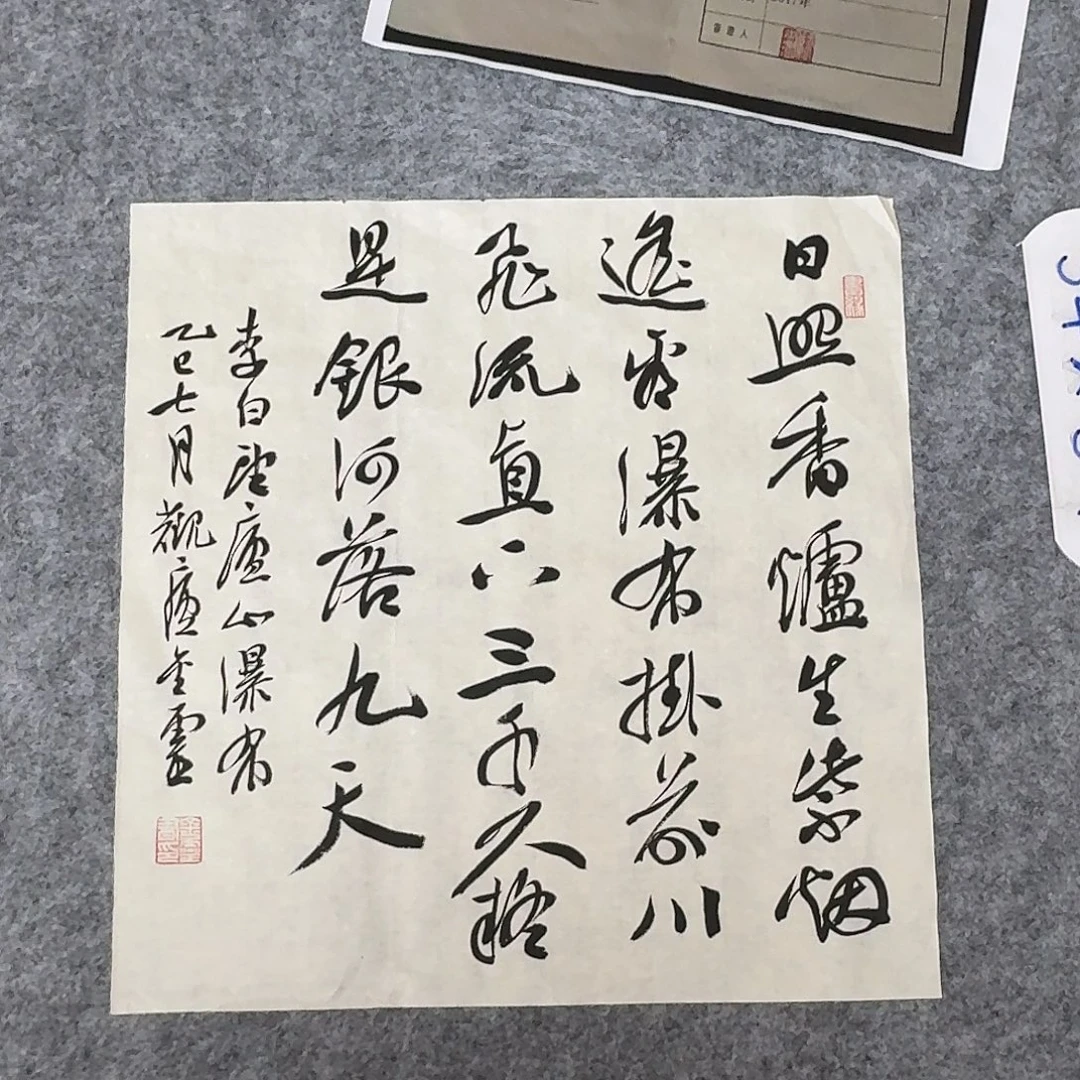 日照香爐生紫烟
遙看瀑布掛前川
飛流直下三千尺疑
是銀河落九天
李白望廬山瀑布
乙巳七月觀廬金
2017年